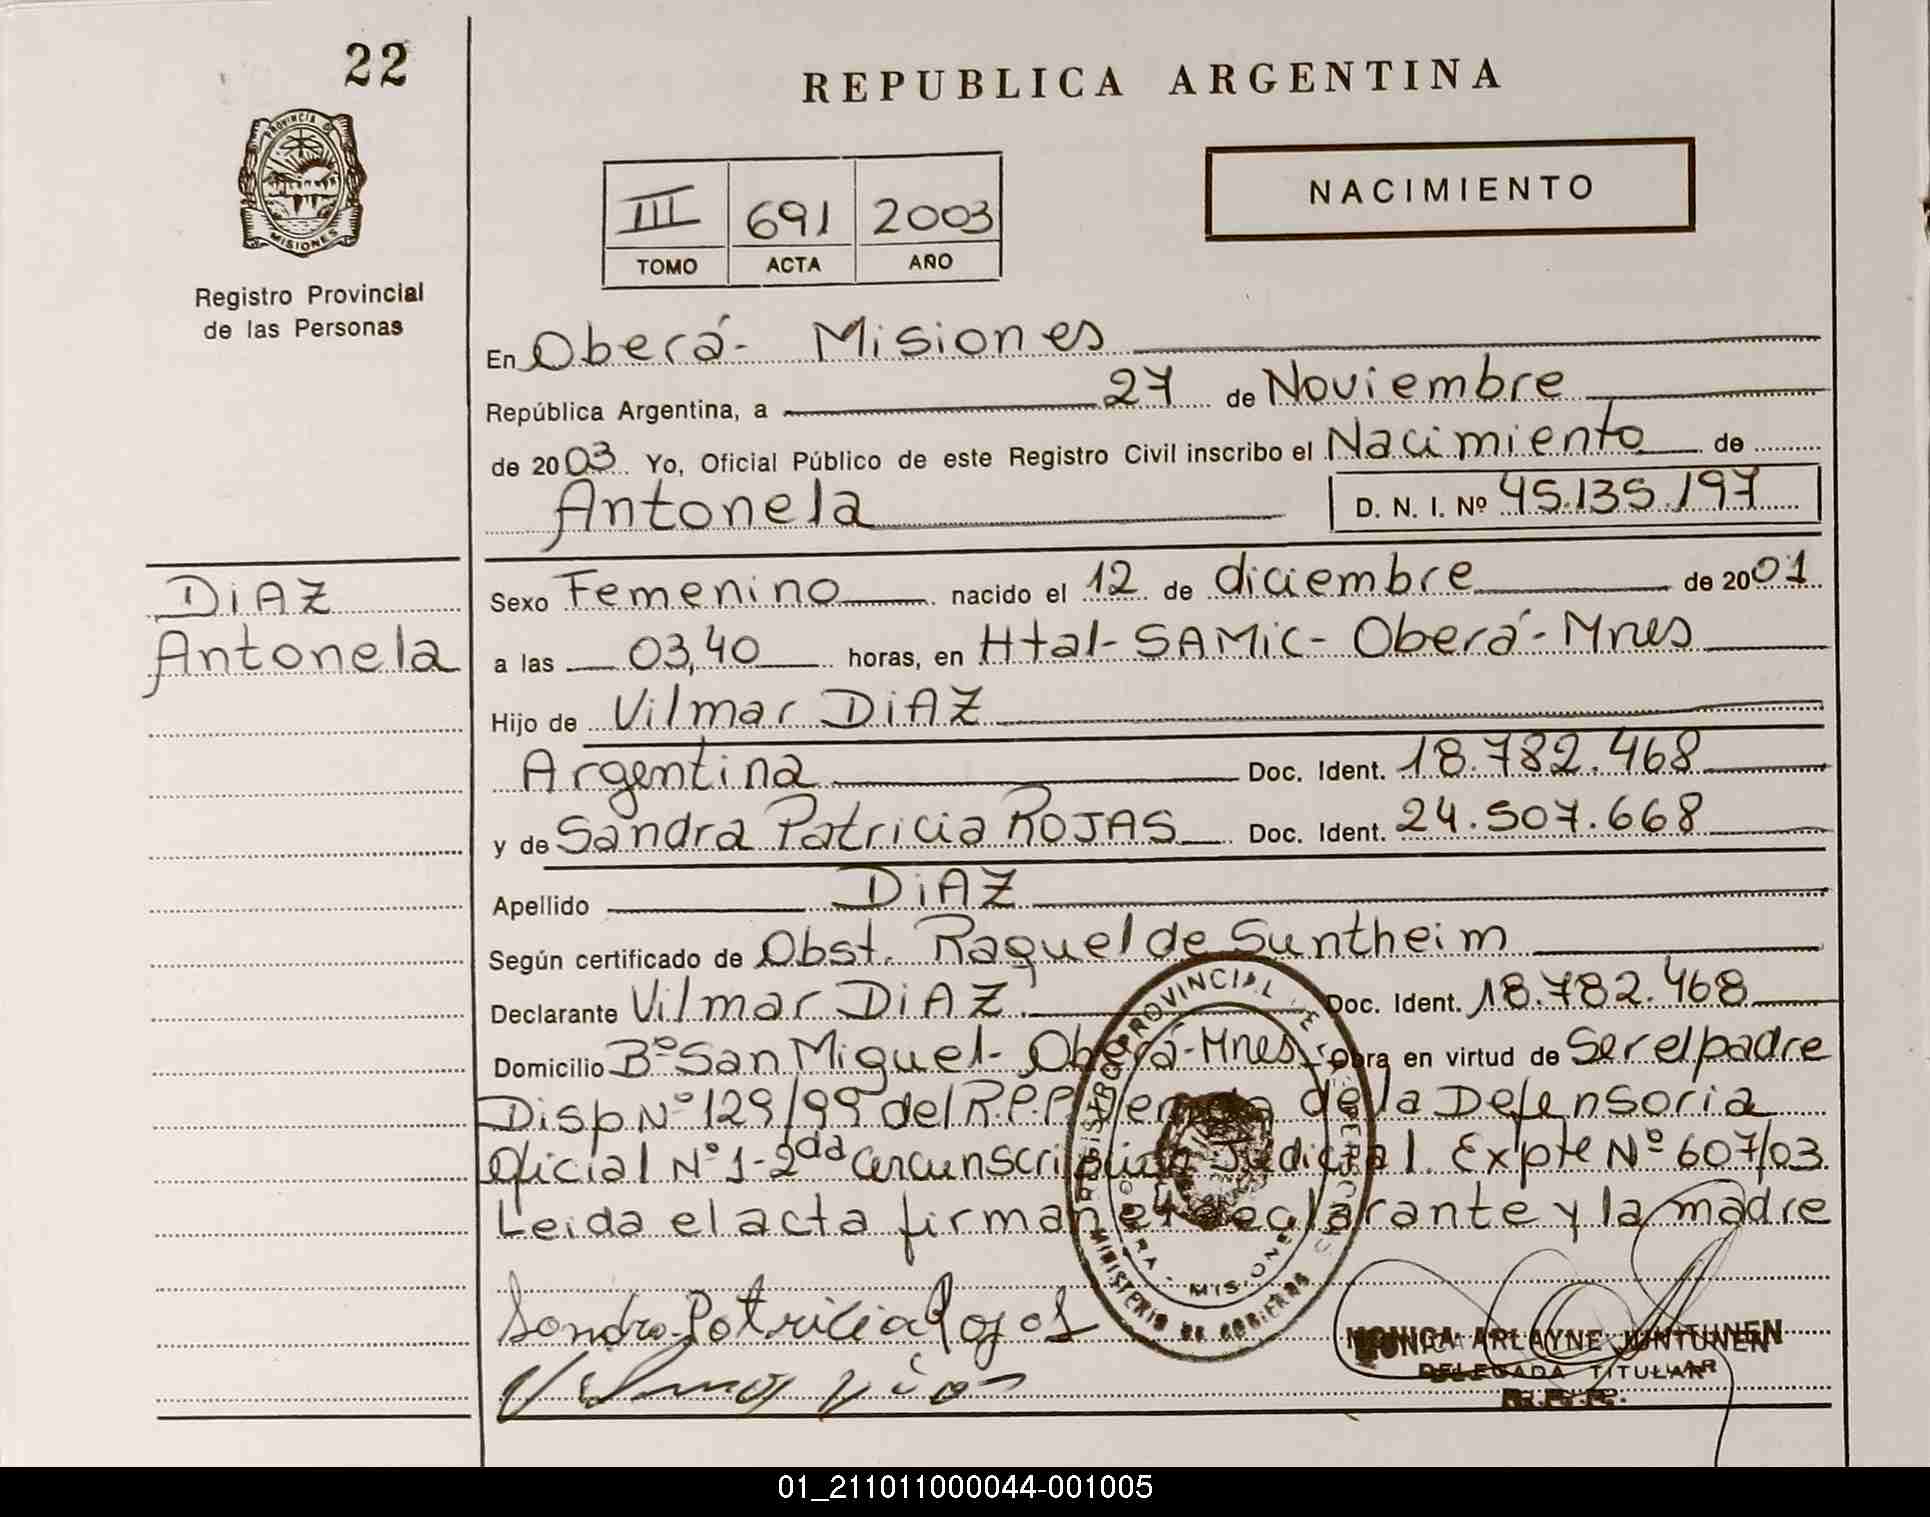 22
REPUBLICA ARGENTINA
PROVINCIA DE
MISIONES
Registro Provincial
de las Personas
III 691 2003
TOMO ACTA AÑO
NACIMIENTO
En Oberá- Misiones
República Argentina, a 27 de Noviembre
de 2003 Yo, Oficial Público de este Registro Civil inscribo el Nacimiento de
Antonela D. N. I. Nº 45.135.197
DiAZ
Antonela
Sexo Femenino nacido el 12 de diciembre de 2001
a las 03,40 horas, en Htal-SAMiC- Oberá-Mnes
Hijo de Vilmar DiAZ
Argentina Doc. Ident. 18.782.468
y de Sandra Patricia ROJAS Doc. Ident. 24.507.668
Apellido DiAZ
Según certificado de Obst. Raquel de Suntheim
Declarante Vilmar DiAZ Doc. Ident. 18.782.468
Domicilio Bº San Miguel- Oberá-Mnes obra en virtud de Ser el padre
Disp Nº 129/99 del R.P.P de la Defensoria
Oficial Nº 1-2da Circunscripción Judicial. Expte Nº 607/03
Leida el acta firman el declarante y la madre
REGISTRO PROVINCIAL DE LAS PERSONAS
OBERA - MISIONES
MINISTERIO DE GOBIERNO
Sandra Patricia Rojas
Vilmar Dias
MONICA ARLAYNE JUNTUNEN
DELEGADA TITULAR
R.P.P.
01_211011000044-001005